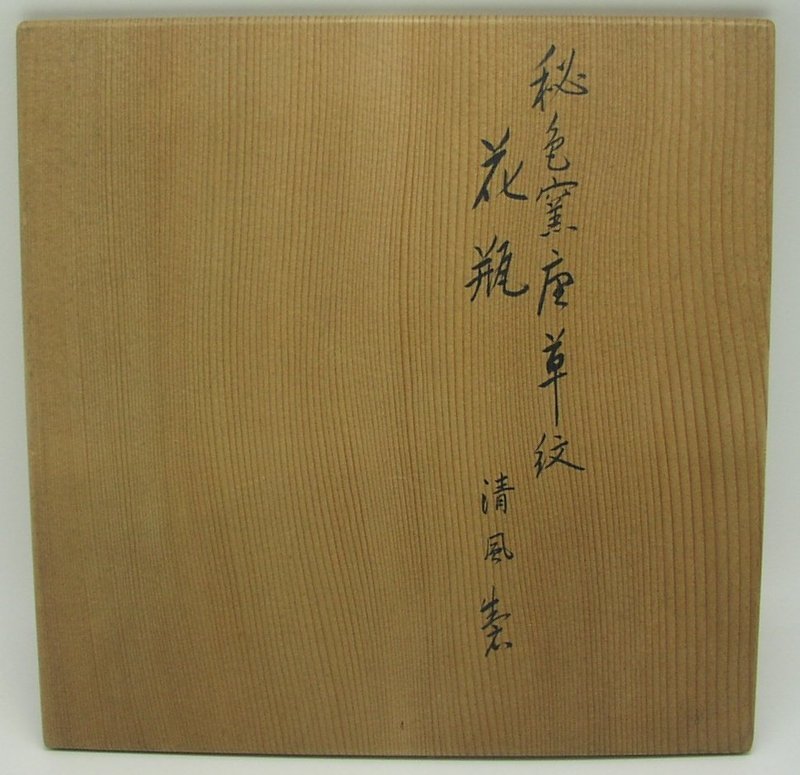 秘色窯唐草紋
花瓶
清風製